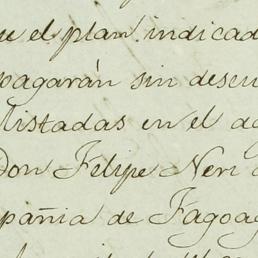 ue el plan indicad
pagarán sin descu
listadas en el a
Don Felipe Neri
pañia de Fagoag